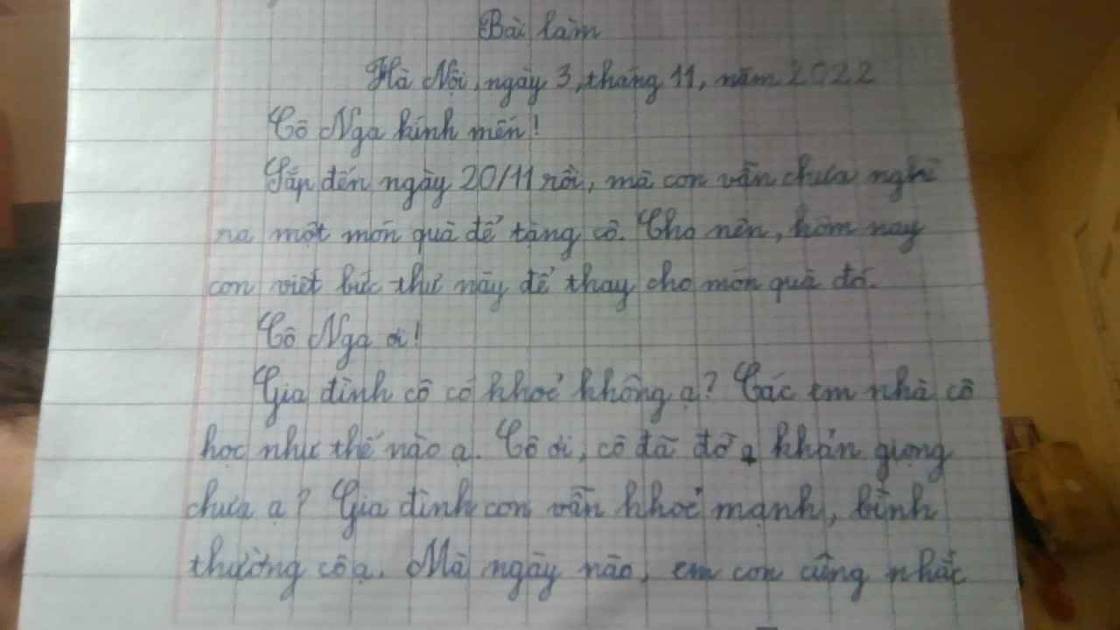 Bài làm
Hà Nội, ngày 3, tháng 11, năm 2022
Cô Nga kính mến!
Sắp đến ngày 20/11 rồi, mà con vẫn chưa nghĩ
ra một món quà để tặng cô. Cho nên, hôm nay
con viết bức thư này để thay cho món quà đó.
Cô Nga ơi!
Gia đình cô có khoẻ không ạ? Các em nhà cô
học như thế nào ạ. Cô ơi, cô đã đỡ khản giọng
chưa ạ? Gia đình con vẫn khoẻ mạnh, bình
thường cô ạ. Mà ngày nào, em con cũng nhắc